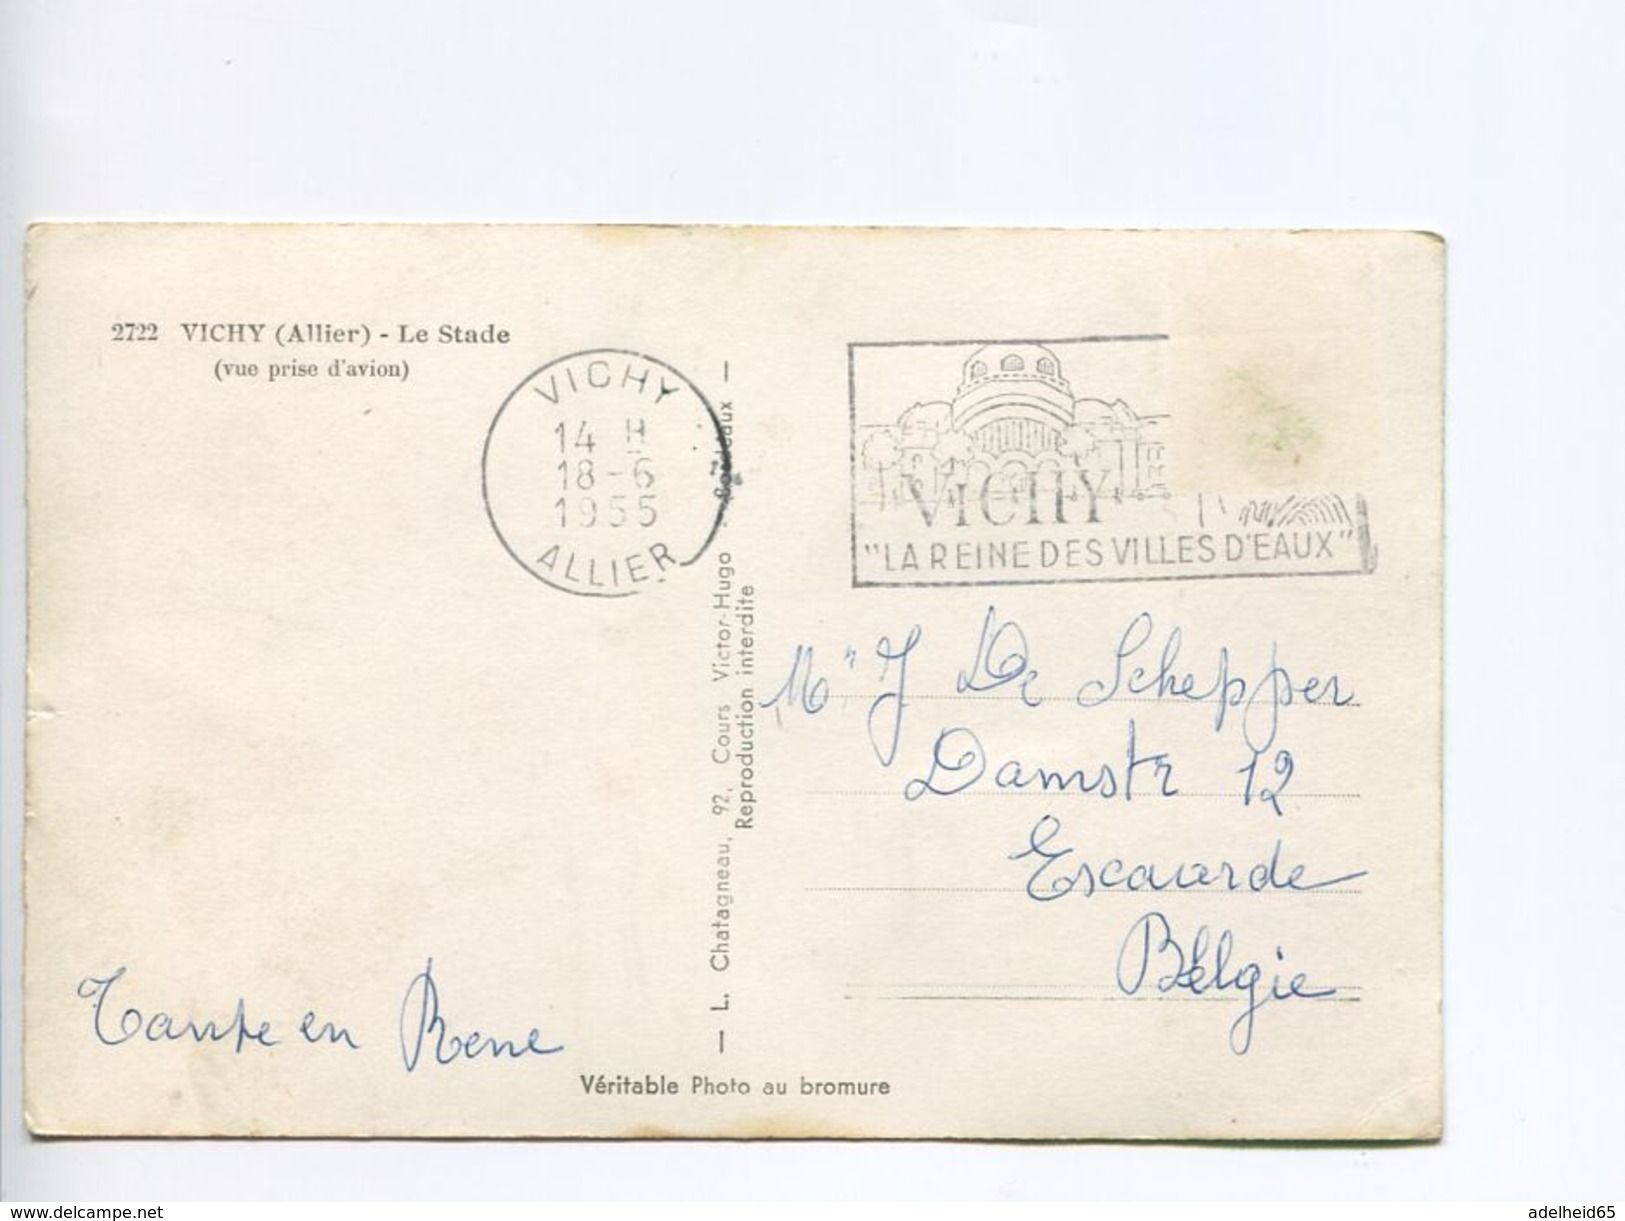 2722 VICHY (Allier) - Le Stade
(vue prise d'avion)
VICHY
14 H
18-6
1955
ALLIER
VICHY
"LA REINE DES VILLES D'EAUX"
— L. Chatagneau, 92, Cours Victor-Hugo - Bordeaux —
Reproduction interdite
Mr J De Schepper
Damstr 12
Escaarde
Bélgie
Tante en Rene
Véritable Photo au bromure
www.delcampe.net
adelheid65